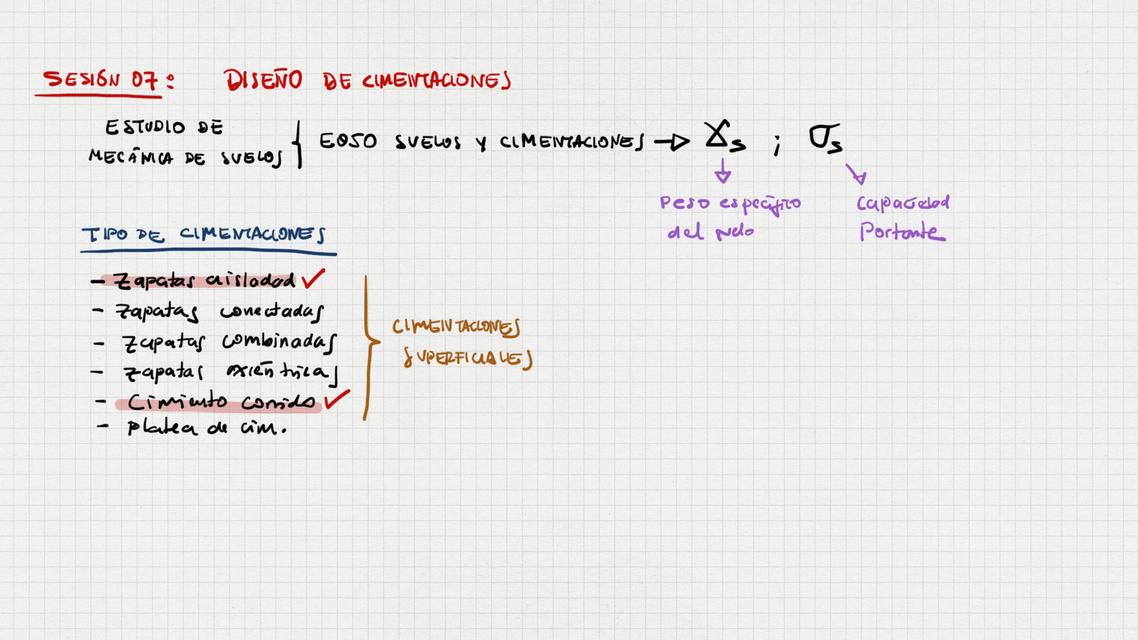 SESIÓN 07: DISEÑO DE CIMENTACIONES
ESTUDIO DE
MECÁNICA DE SUELOS { E050 SUELOS Y CIMENTACIONES → γs ; σs
Peso específico
del suelo
Capacidad
Portante
TIPO DE CIMENTACIONES
- Zapatas aisladas ✓
- Zapatas conectadas
- Zapatas combinadas
- Zapatas excéntricas
- Cimiento corrido ✓
- Platea de cim.
CIMENTACIONES
SUPERFICIALES